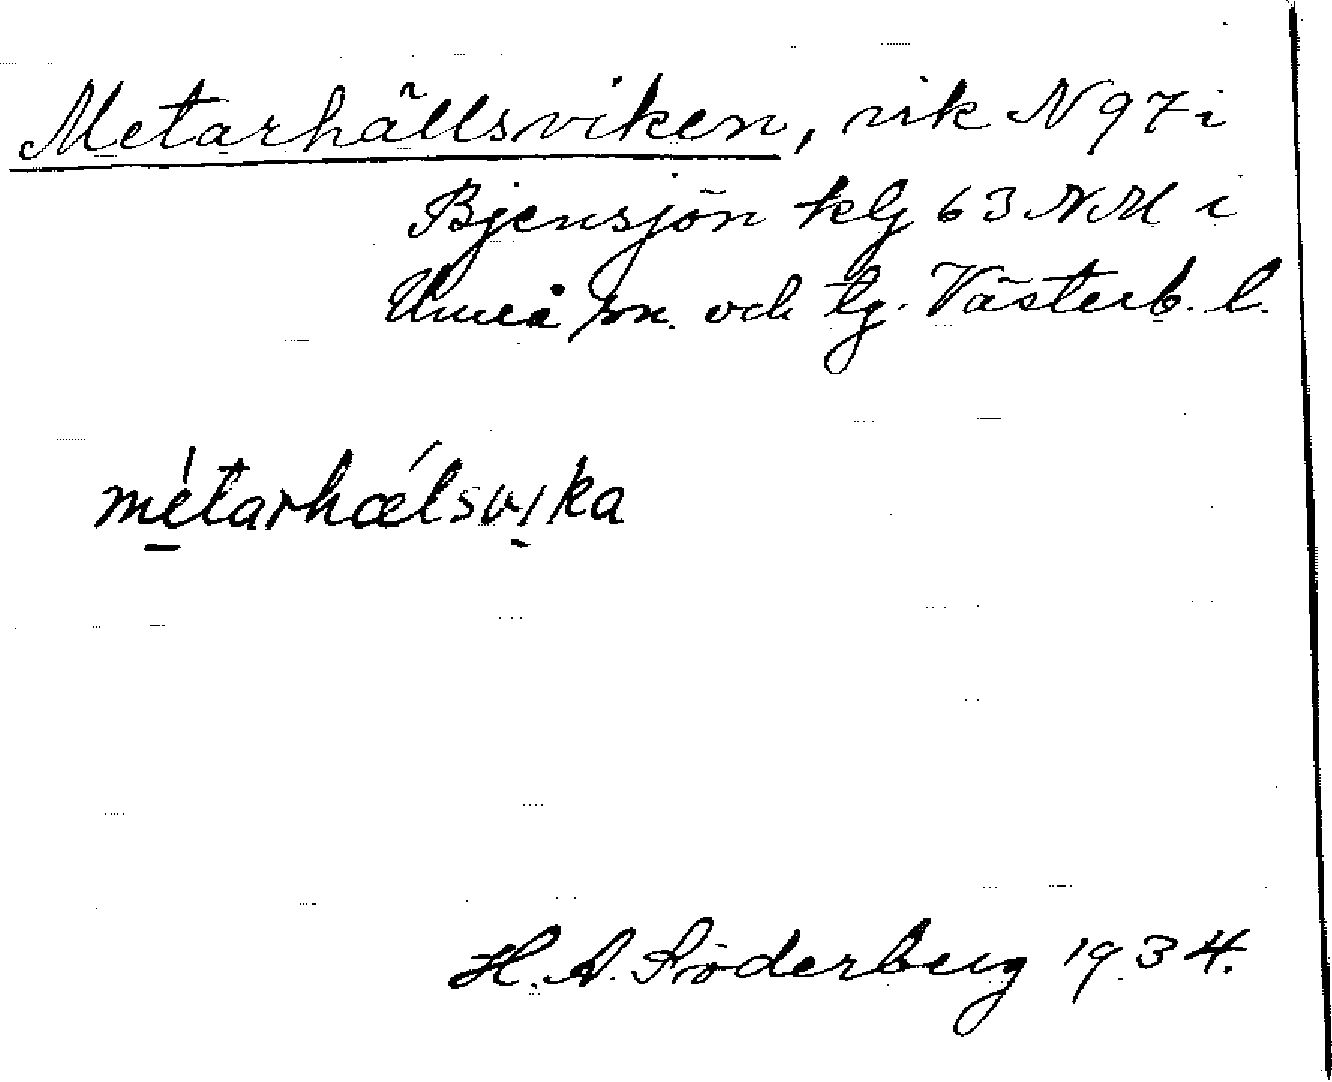 Metarhällsviken, vik N 97 i
Bjensjön klg 63 NM i
Umeå sn. och tg. Västerb. l.
métarhǽlsvika
H. A. Söderberg 1934.